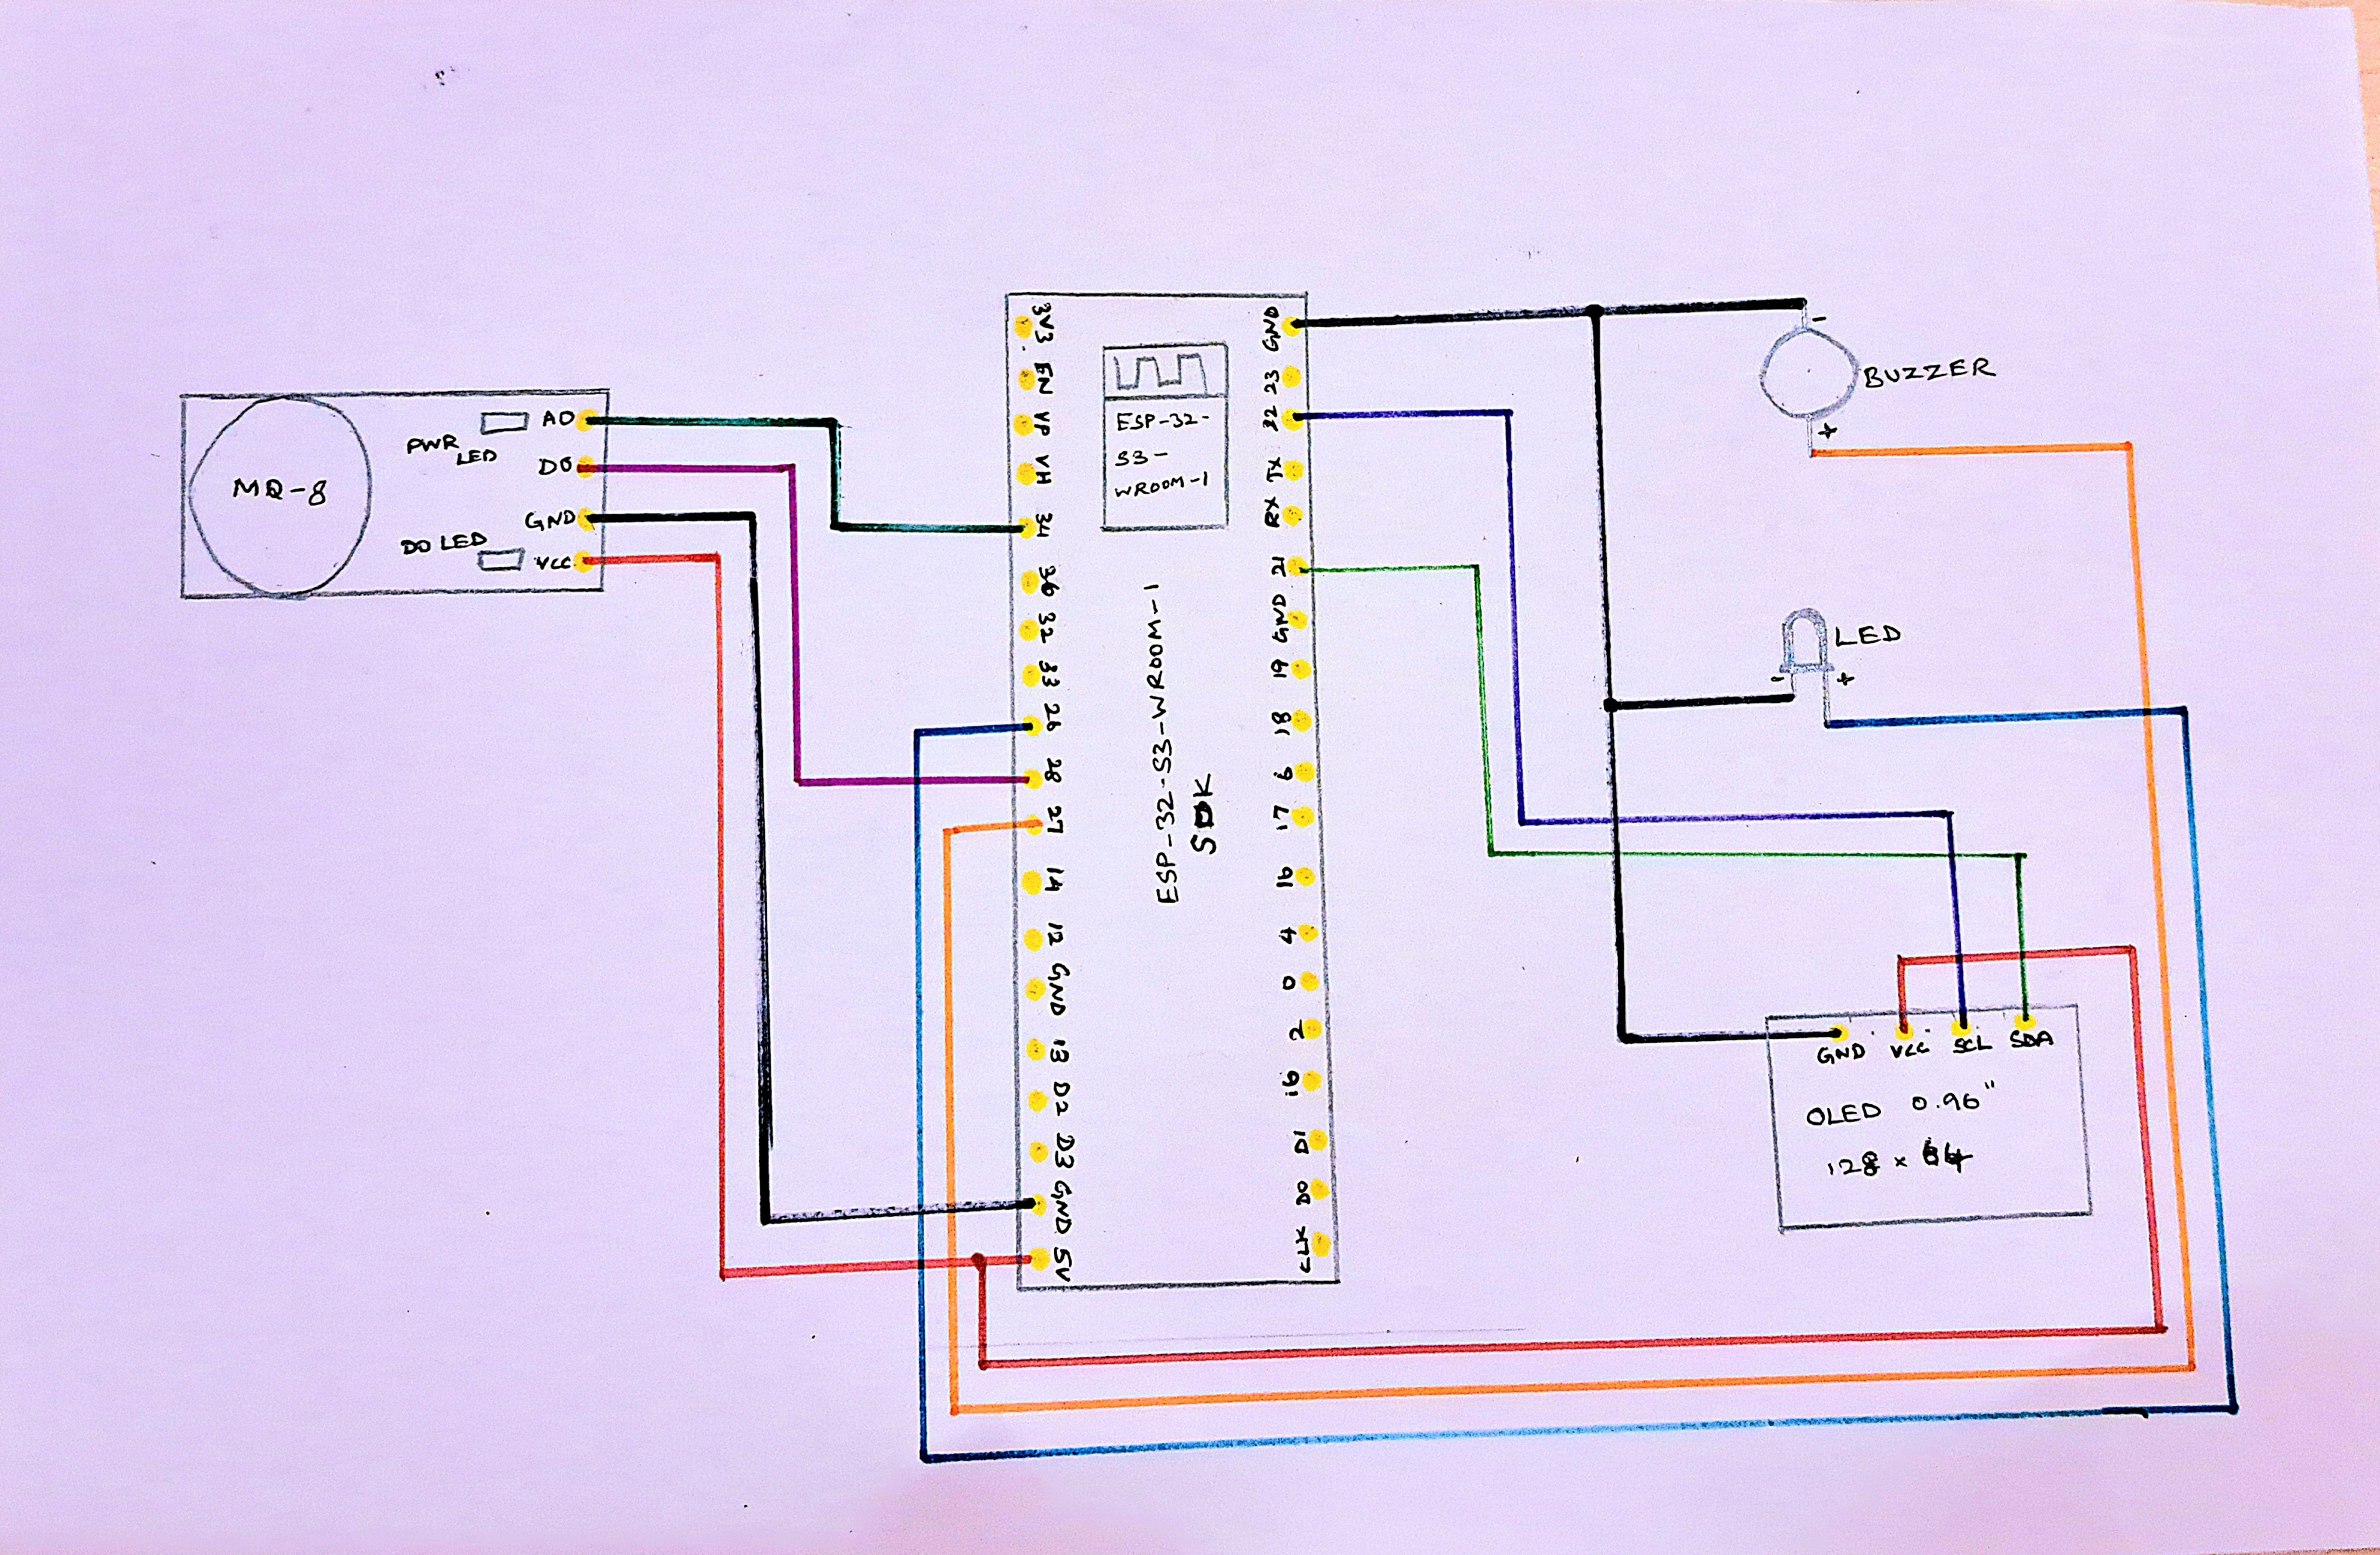 MQ-8
PWR
LED
DO LED
AO
DO
GND
VCC
3V3
EN
VP
VH
34
36
32
33
26
28
27
14
12
GND
13
D2
D3
GND
5V
ESP-32-
S3-
WROOM-1
ESP-32-S3-WROOM-1
SDK
GND
23
22
TX
RX
21
GND
19
18
6
17
16
4
0
2
16
D1
D0
CLK
-
BUZZER
+
LED
-
+
GND
VCC
SCL
SDA
OLED 0.96"
128 x 64